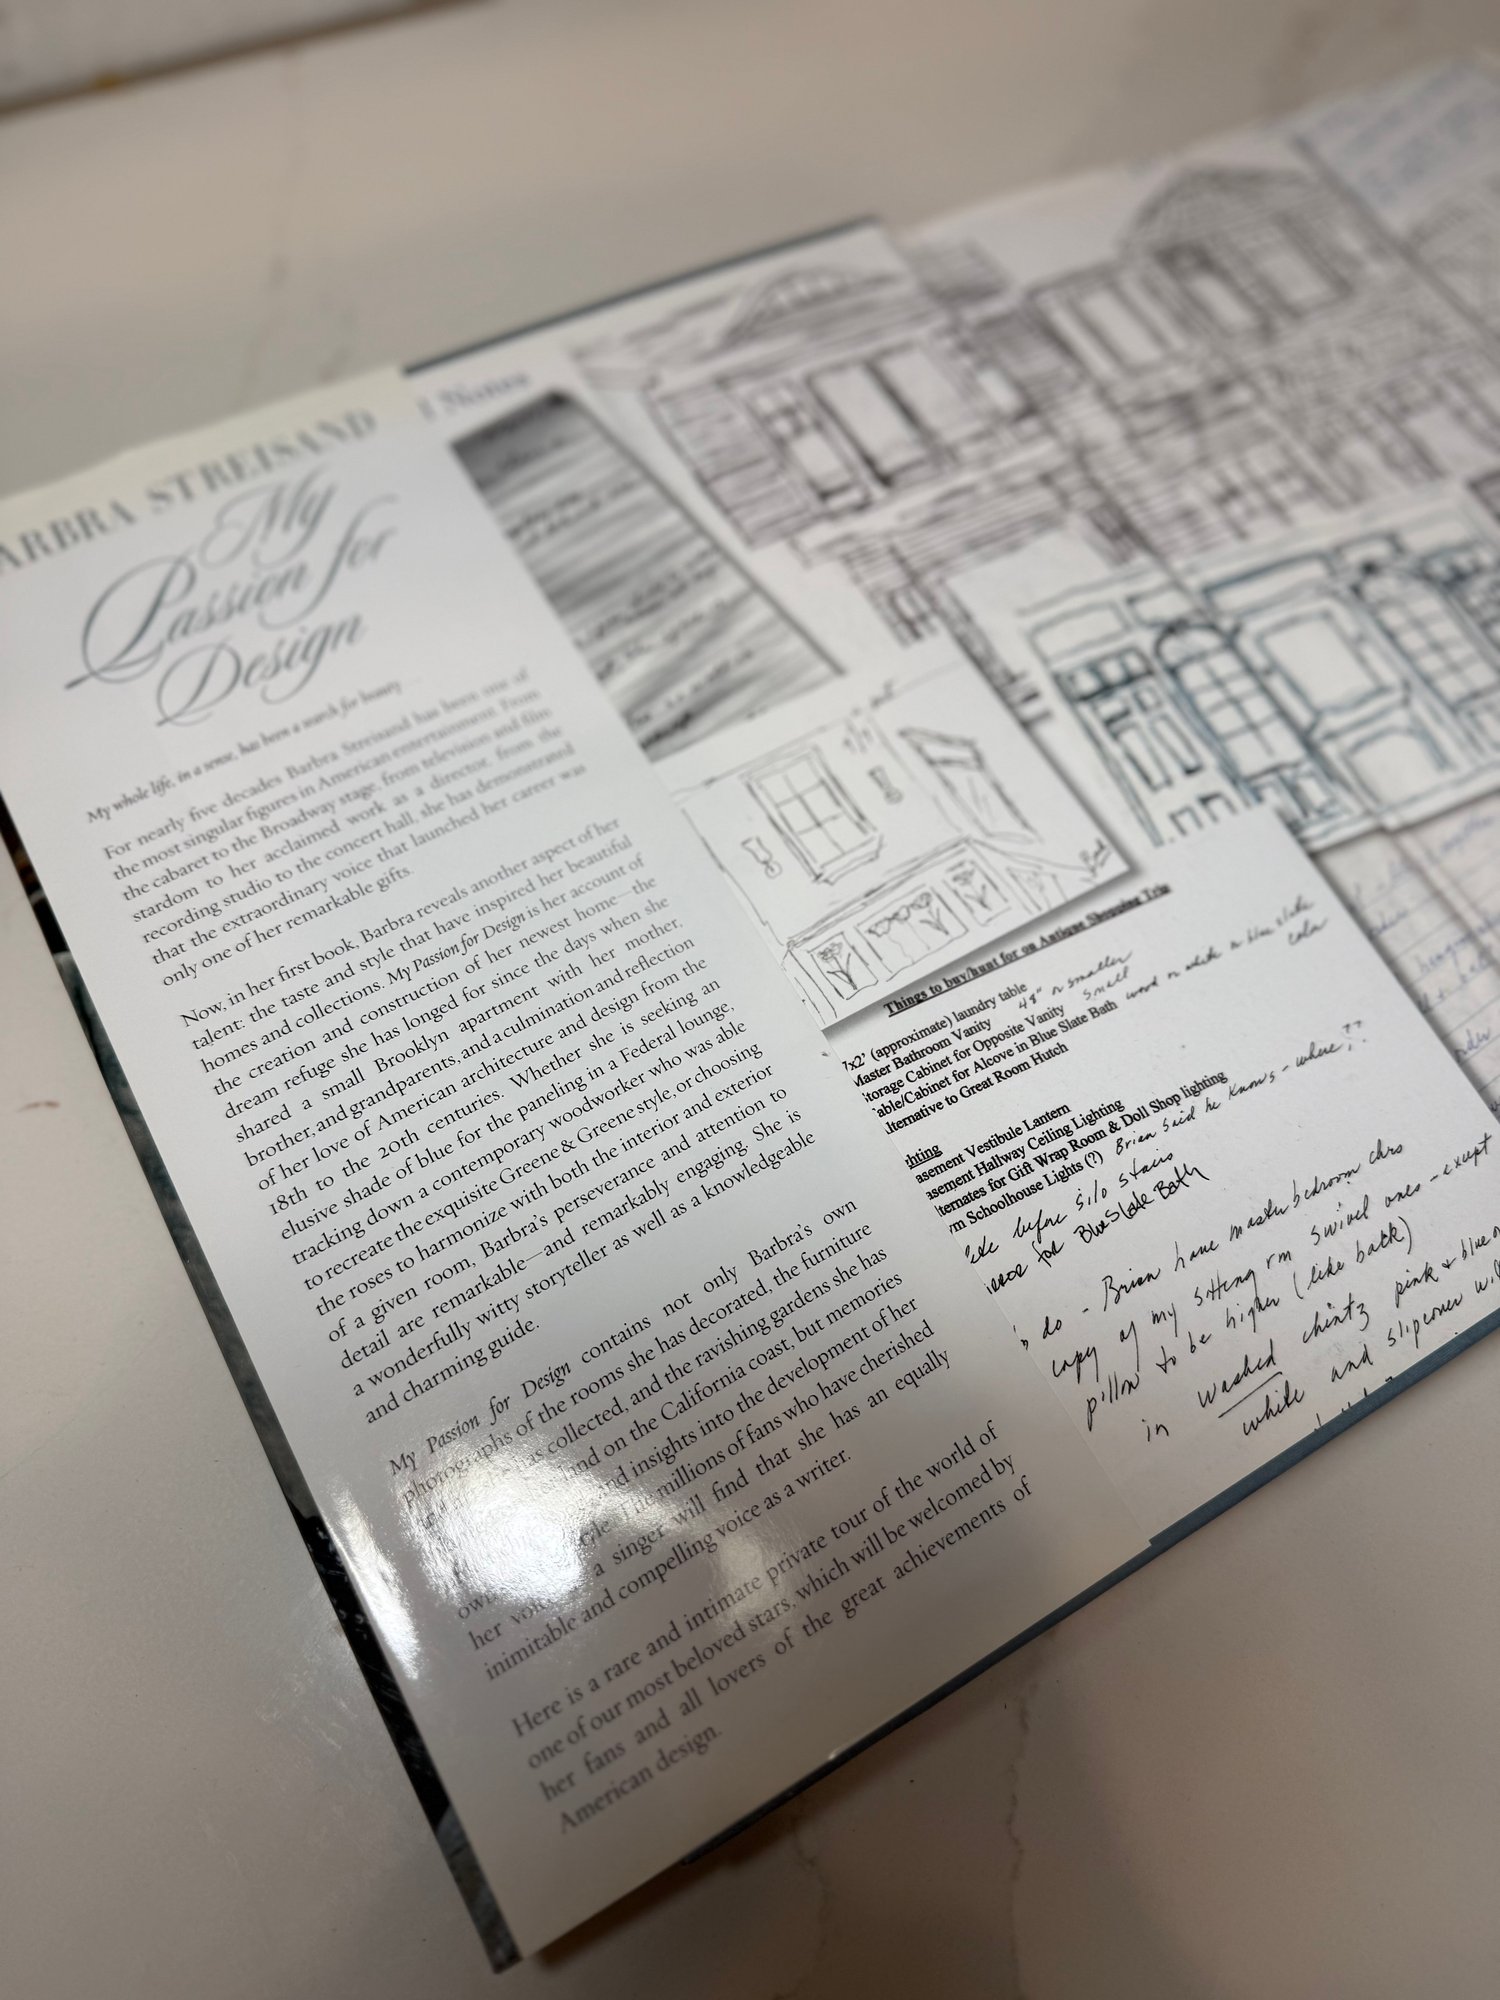 ARBRA STREISAND
My
Passion for
Design
My whole life, in a sense, has been a search for beauty...
For nearly five decades Barbra Streisand has been one of
the most singular figures in American entertainment. From
the cabaret to the Broadway stage, from television and film
stardom to her acclaimed work as a director, from the
recording studio to the concert hall, she has demonstrated
that the extraordinary voice that launched her career was
only one of her remarkable gifts.
Now, in her first book, Barbra reveals another aspect of her
talent: the taste and style that have inspired her beautiful
homes and collections. My Passion for Design is her account of
the creation and construction of her newest home—the
dream refuge she has longed for since the days when she
shared a small Brooklyn apartment with her mother,
brother, and grandparents, and a culmination and reflection
of her love of American architecture and design from the
18th to the 20th centuries. Whether she is seeking an
elusive shade of blue for the paneling in a Federal lounge,
tracking down a contemporary woodworker who was able
to recreate the exquisite Greene & Greene style, or choosing
the roses to harmonize with both the interior and exterior
of a given room, Barbra's perseverance and attention to
detail are remarkable—and remarkably engaging. She is
a wonderfully witty storyteller as well as a knowledgeable
and charming guide.
My Passion for Design contains not only Barbra's own
photographs of the rooms she has decorated, the furniture
has collected, and the ravishing gardens she has
land on the California coast, but memories
and insights into the development of her
The millions of fans who have cherished
her a singer will find that she has an equally
inimitable and compelling voice as a writer.
Here is a rare and intimate private tour of the world of
one of our most beloved stars, which will be welcomed by
her fans and all lovers of the great achievements of
American design.
Things to buy/hunt for on Antique Shopping Trip
7x2' (approximate) laundry table
Master Bathroom Vanity 48" or smaller
torage Cabinet for Opposite Vanity small
able/Cabinet for Alcove in Blue Slate Bath wood or white or blue slate
color
lternative to Great Room Hutch
ghting
asement Vestibule Lantern
asement Hallway Ceiling Lighting
lternates for Gift Wrap Room & Doll Shop lighting
rm Schoolhouse Lights (?) Brian said he knows - where??
before silo stairs
for Blue Slate Bath
do - Brian have master bedroom chrs
copy of my sitting rm swivel ones - except
pillow to be higher (like back)
in washed chintz pink & blue
white and slipcover